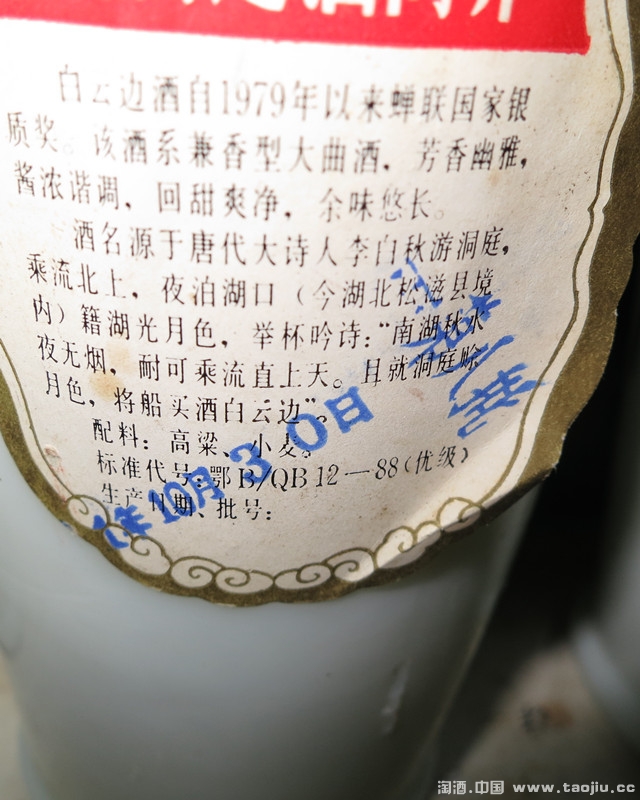 白云边酒自1979年以来蝉联国家银
质奖。该酒系兼香型大曲酒，芳香幽雅，
酱浓谐调，回甜爽净，余味悠长。
酒名源于唐代大诗人李白秋游洞庭，
乘流北上，夜泊湖口（今湖北松滋县境
内）籍湖光月色，举杯吟诗：“南湖秋水
夜无烟，耐可乘流直上天。且就洞庭赊
月色，将船买酒白云边”。
配料：高粱、小麦。
标准代号：鄂B/QB12—88（优级）
生产日期、批号：
年10月30日
淘酒.中国 www.taojiu.cc